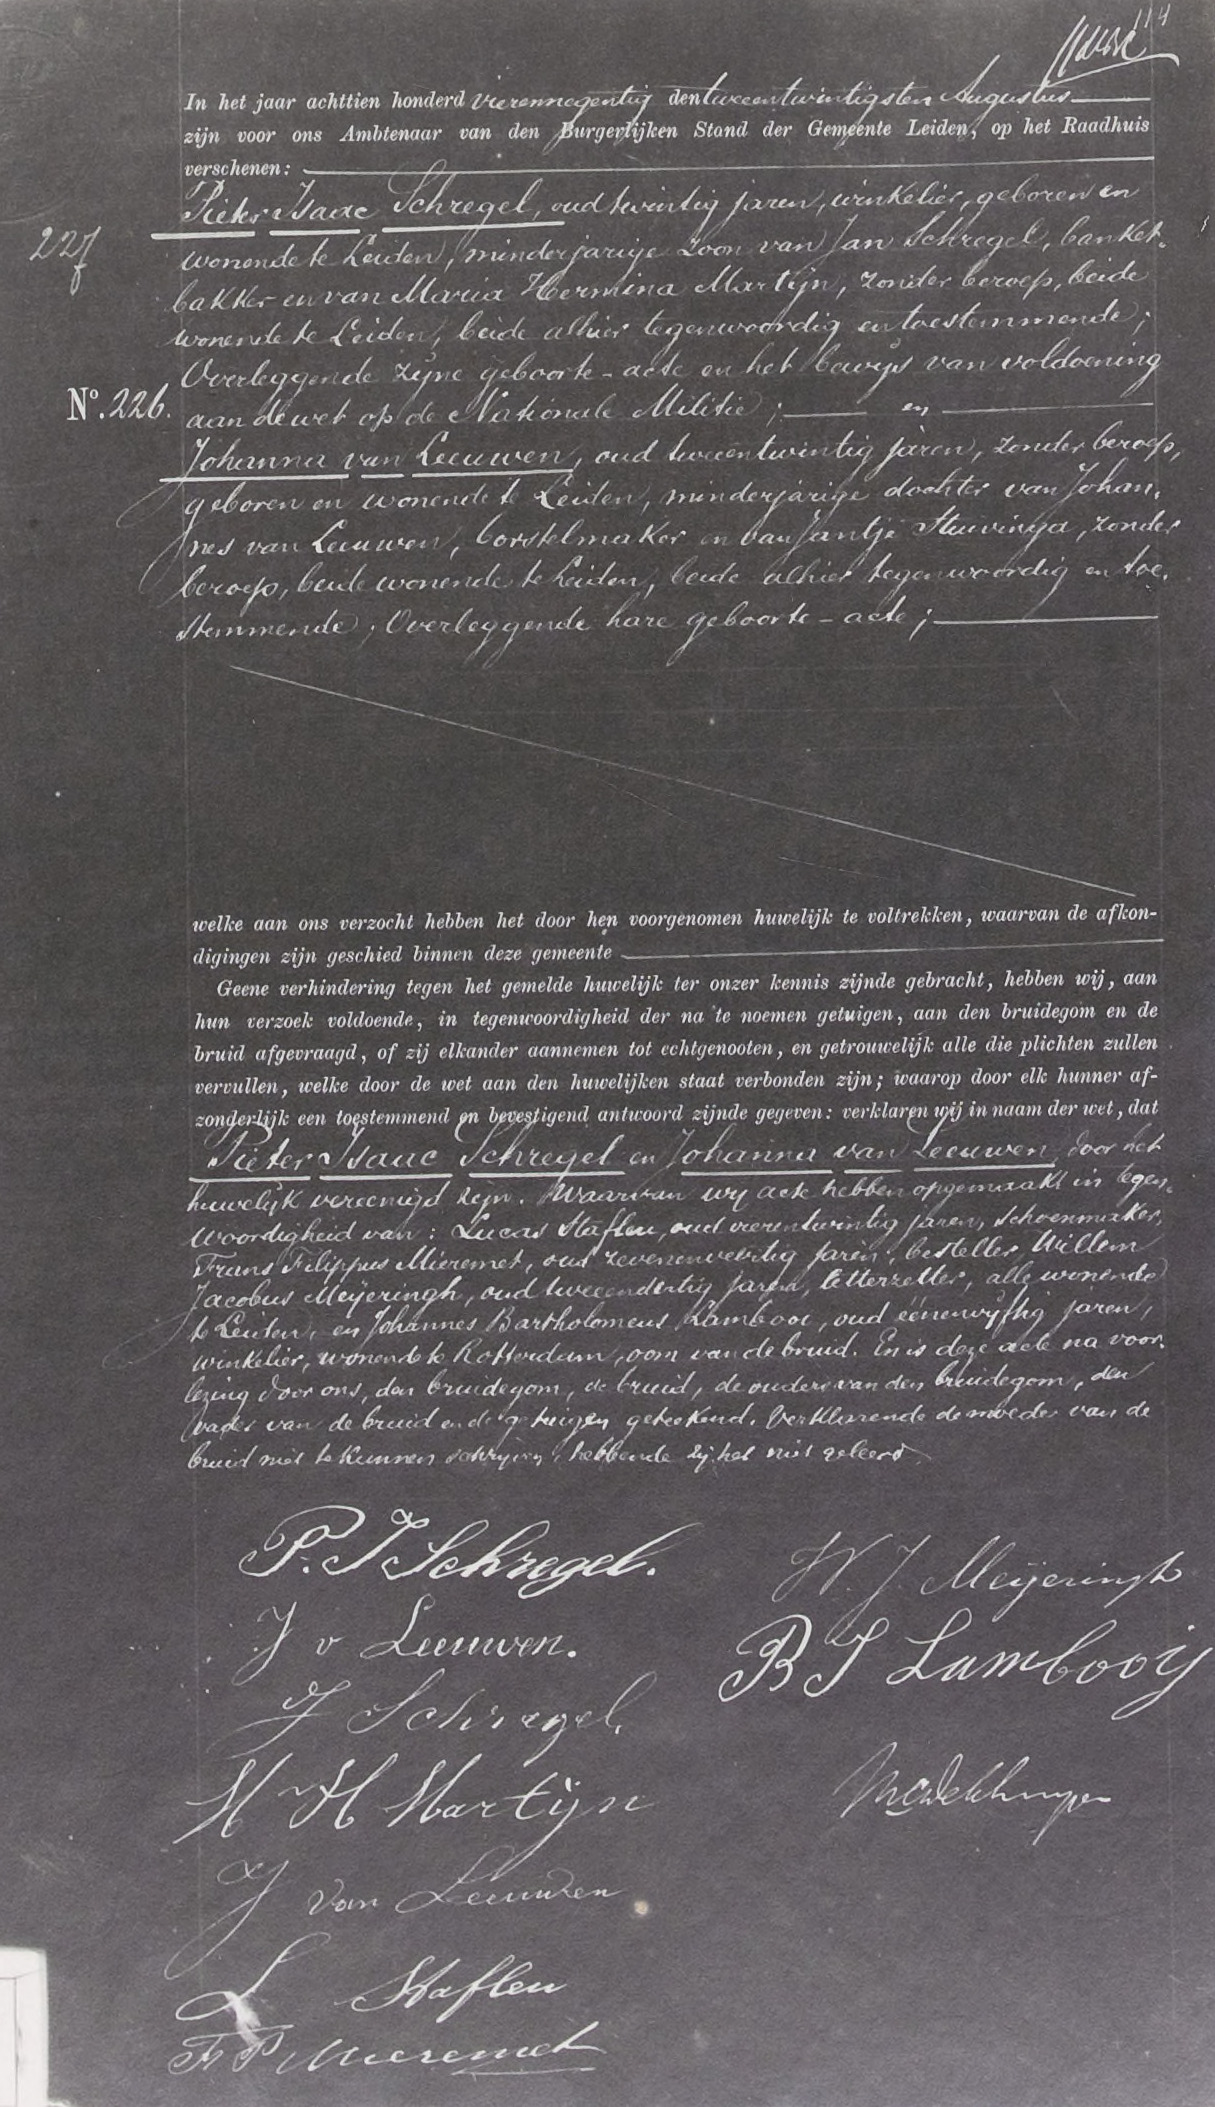 114
In het jaar achttien honderd vierennegentig den tweeentwintigsten Augustus
zijn voor ons Ambtenaar van den Burgerlijken Stand der Gemeente Leiden, op het Raadhuis
verschenen:
Pieter Isaac Schregel, oud twintig jaren, winkelier, geboren en
227
wonende te Leiden, minderjarige zoon van Jan Schregel, banket-
bakker en van Maria Hermina Martijn, zonder beroep, beide
wonende te Leiden, beide alhier tegenwoordig en toestemmende;
Overleggende zijne geboorte-acte en het bewijs van voldoening
No. 226. aan de wet op de Nationale Militie; en
Johanna van Leeuwen, oud tweeentwintig jaren, zonder beroep,
geboren en wonende te Leiden, minderjarige dochter van Johan-
nes van Leeuwen, borstelmaker en van Jantje Stuivinga, zonder
beroep, beide wonende te Leiden, beide alhier tegenwoordig en toe-
stemmende; Overleggende hare geboorte-acte;
welke aan ons verzocht hebben het door hen voorgenomen huwelijk te voltrekken, waarvan de afkon-
digingen zijn geschied binnen deze gemeente
Geene verhindering tegen het gemelde huwelijk ter onzer kennis zijnde gebracht, hebben wij, aan
hun verzoek voldoende, in tegenwoordigheid der na te noemen getuigen, aan den bruidegom en de
bruid afgevraagd, of zij elkander aannemen tot echtgenooten, en getrouwelijk alle die plichten zullen
vervullen, welke door de wet aan den huwelijken staat verbonden zijn; waarop door elk hunner af-
zonderlijk een toestemmend en bevestigend antwoord zijnde gegeven: verklaren wij in naam der wet, dat
Pieter Isaac Schregel en Johanna van Leeuwen, door het
huwelijk vereenigd zijn. Waarvan wij acte hebben opgemaakt in tegen-
woordigheid van: Lucas Stafleu, oud vierentwintig jaren, schoenmaker,
Frans Filippus Mieremet, oud zevenenveertig jaren, besteller, Willem
Jacobus Meijeringh, oud tweeendertig jaren, letterzetter, alle wonende
te Leiden, en Johannes Bartholomeus Lambooi, oud eenenvijftig jaren,
winkelier, wonende te Rotterdam, oom van de bruid. En is deze acte na voor-
lezing door ons, den bruidegom, de bruid, de ouders van den bruidegom, den
vader van de bruid en de getuigen geteekend. Verklarende de moeder van de
bruid niet te kunnen schrijven, hebbende zij het niet geleerd.
P. I Schregel.
W. J. Meijeringh
J v Leeuwen.
B J Lambooij
J Schregel.
M H Martijn
J van Leeuwen
L Stafleu
F P Mieremet